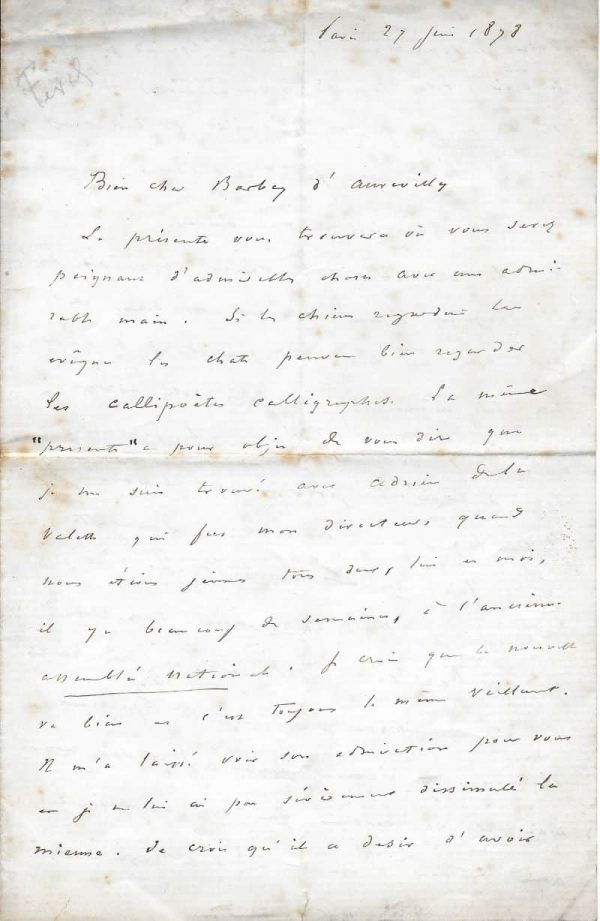 Paris 27 juin 1878
Féval
Bien cher Barbey d'Aurevilly
La présente vous trouvera où vous serez
peignant d'admirables choses avec une admi-
rable main. Si les chiens regardent les
évêques les chats peuvent bien regarder
les callipoètes calligraphes. La même
"présente" a pour objet de vous dire que
je me suis trouvé avec Adrien de la
Valette qui fut mon directeur, quand
nous étions jeunes tous deux, lui et moi,
il y a beaucoup de semaines, à l'ancienne
assemblée nationale. Je crois que la nouvelle
va bien et c'est toujours le même vaillant.
Il m'a laissé voir son admiration pour vous
et je ne lui ai pas sévèrement dissimulé la
mienne. Je crois qu'il a désir d'avoir